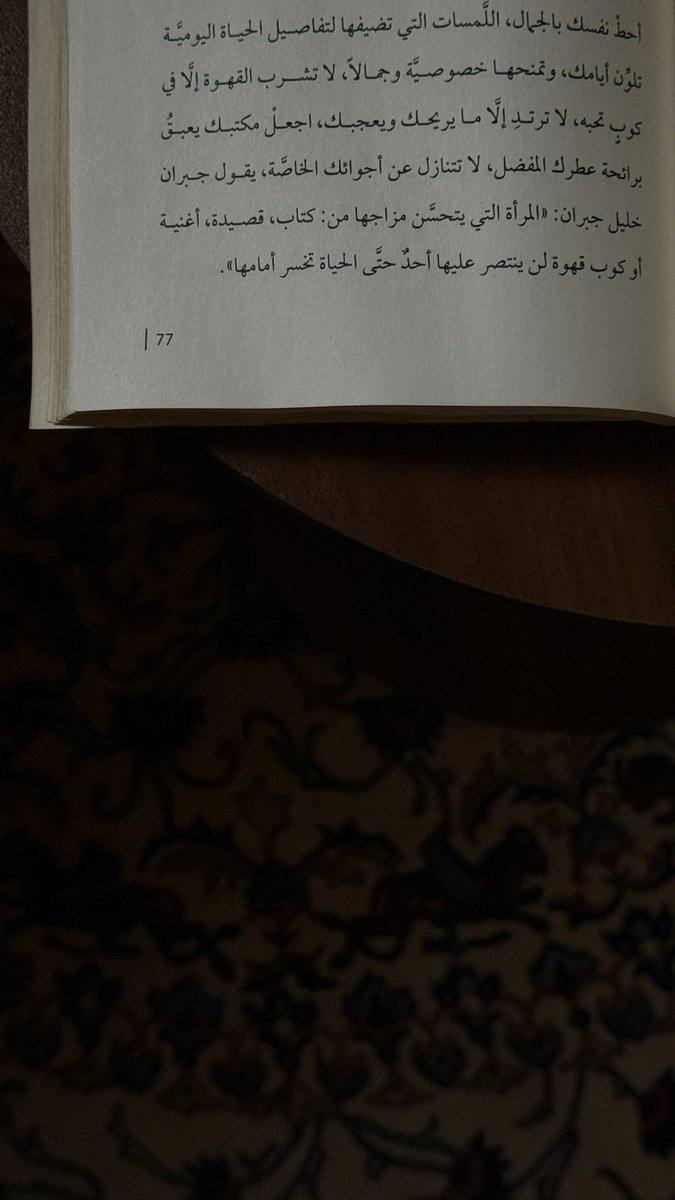 أحطْ نفسك بالجمال، اللَّمسات التي تضيفها لتفاصيل الحياة اليوميَّة
تلوِّن أيامك، وتمنحها خصوصيَّة وجمالاً، لا تشرب القهوة إلَّا في
كوبٍ تحبه، لا ترتدِ إلَّا ما يريحك ويعجبك، اجعلْ مكتبك يعبقُ
برائحة عطرك المفضل، لا تتنازل عن أجوائك الخاصَّة، يقول جبران
خليل جبران: «المرأة التي يتحسَّن مزاجها من: كتاب، قصيدة، أغنية
أو كوب قهوة لن ينتصر عليها أحدٌ حتَّى الحياة تخسر أمامها».
77 |